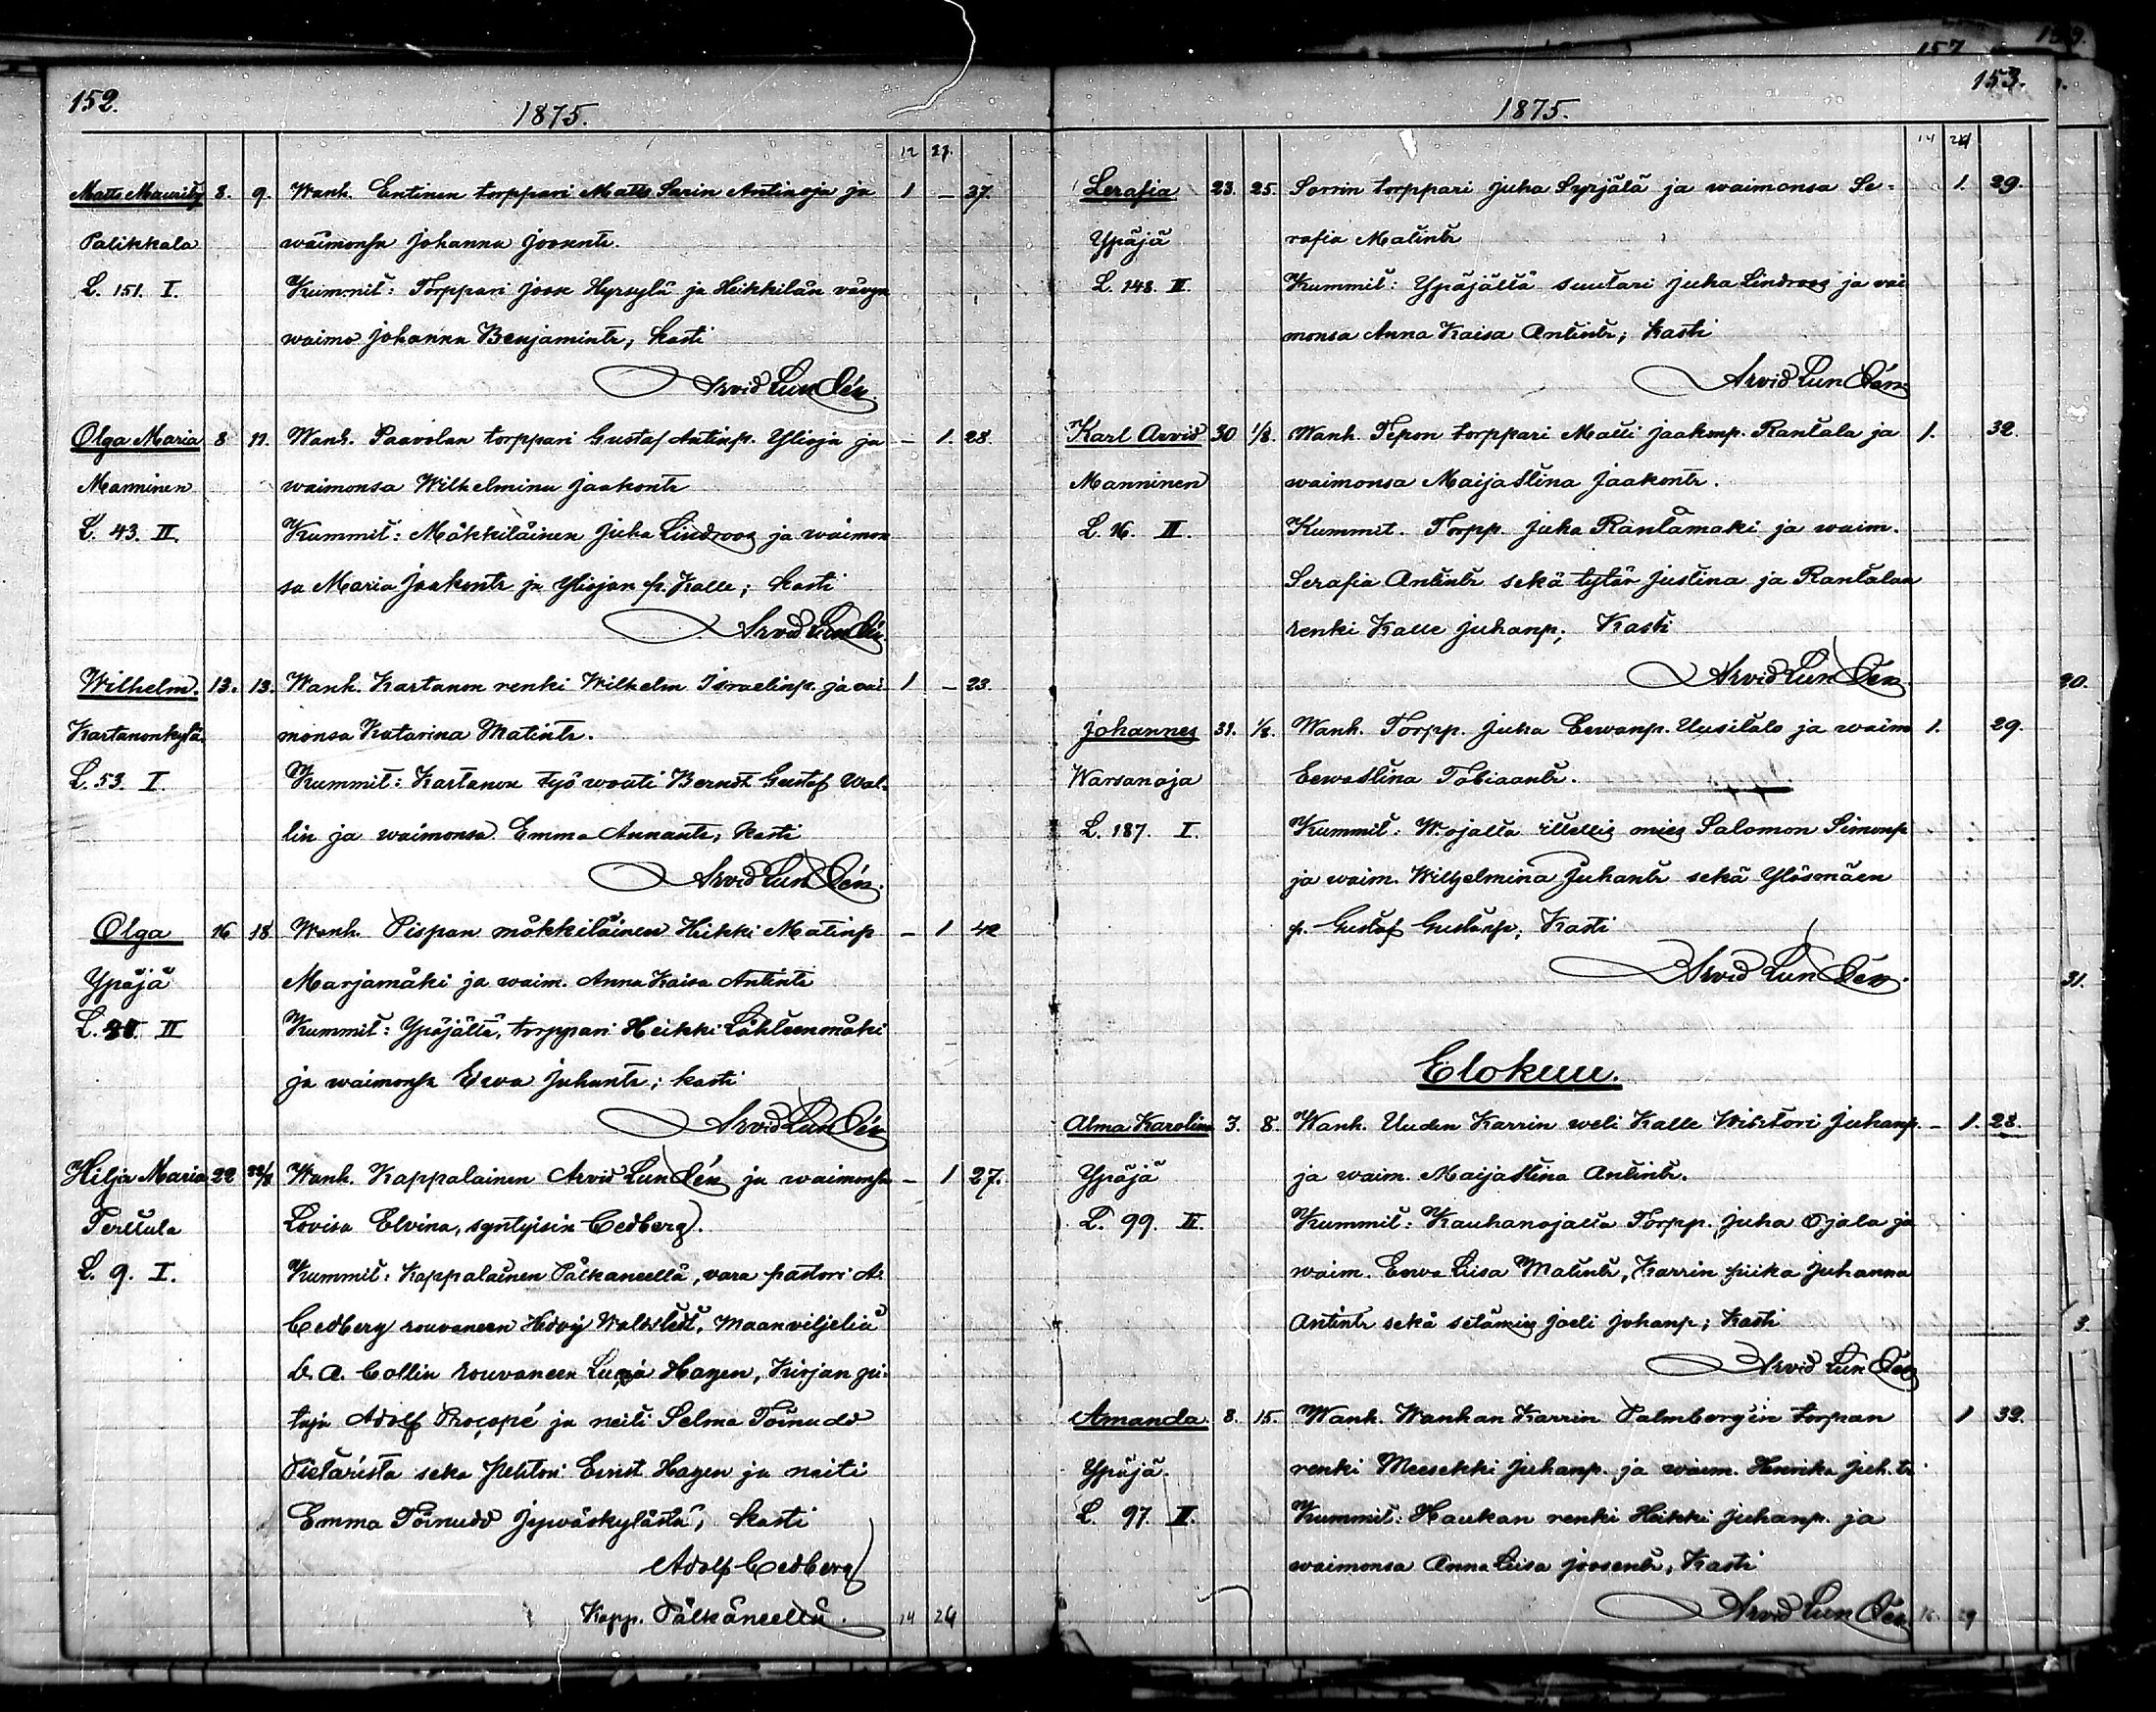 152.
1875.
12 27.
Matts Mauritz 8. 9. Wanh. Entinen torppari Matts Sarin Antinoja ja 1 - 37.
Palikkala waimonsa Johanna Joosentr.
L. 151. I. Kummit: Torppari Joose Hyrsylä ja Heikkilän vävyn
waimo Johanna Benjamintr, kasti
Arvid Lundén.
Olga Maria 8 11. Wanh. Paavolan torppari Gustaf Antinp. Ylioja ja - 1. 28.
Manninen waimonsa Wilhelmina Jaakontr
L. 43. II. Kummit: Mäkkiläinen Juha Lindroos ja waimon
sa Maria Jaakontr ja Yliojan p. Kalle; kasti
Arvid Lundén.
Wilhelm. 13. 13. Wanh. Kartanon renki Wilhelm Israelinp. ja vai- 1 - 23.
Kartanonkylä. monsa Katarina Matintr.
L. 53. I. Kummit: Kartanon työ wouti Berndt Gustaf Wal-
lin ja waimonsa Emma Annantr, kasti
Arvid Lundén.
Olga 16 18 Wanh. Pispan mökkiläinen Heikki Matinp - 1 42
Ypäjä Marjamäki ja waim. Anna Kaisa Antintr
L. II Kummit: Ypäjältä, torppari Heikki Lähteenmäki
ja waimonsa Eewa Juhantr; kasti
Arvid Lundén
Hilja Maria 22 22/8 Wanh. Kappalainen Arvid Lundén ja waimonsa - 1 27.
Perttula Lovisa Elvina, syntyisin Cedberg.
L. 9. I. Kummit: Kappalainen Pälkäneellä, vara pastori A.
Cedberg rouvaneen Hedvig Waldstedt, Maanviljeliä
C. A. Collin rouvaneen Lucia Hagen, Kirjan pi-
täjä Adolf Procopé ja neiti Selma Törnudd
Pietarista sekä Ernst Hagen ja neiti
Emma Törnudd Jyväskylästä, kasti
Adolf Cedberg
Kapp. Pälkäneellä.
14 24
153.
1875.
14 24
Serafia 23. 25. Sarrin torppari Juha Syrjälä ja waimonsa Se- 1. 29.
Ypäjä rafia Matintr
L. 148. II. Kummit: Ypäjältä suutari Juha Lindroos ja vai
monsa Anna Kaisa Antintr; Kasti
Arvid Lundén
Karl Arvid 30 1/8. Wanh. Tepon torppari Matti Jaakonp. Rantala ja 1. 32.
Manninen waimonsa Maijastina Jaakontr.
L. 16. II. Kummit. Torpp. Juha Rantamäki ja waim.
Serafia Antintr sekä tytär Justina ja Rantalan
renki Kalle Juhanp; Kasti
Arvid Lundén.
Johannes 31. 1/8. Wanh. Torpp. Juha Eewanp. Uusitalo ja waim 1. 29.
Warsanoja Eewastina Tobiaantr.
L. 187. I. Kummit: W.ojalta itellis mies Salomon Simonp
ja waim. Wilhelmina Juhantr sekä Ylösmäen
p. Gustaf Gustanp; Kasti
Arvid Lundén.
Elokuu.
Alma Karolina 3. 8. Wanh. Uuden Karrin weli Kalle Wihtori Juhanp. - 1. 28.
Ypäjä ja waim. Maijastina Antintr.
L. 99. II. Kummit: Kauhanojalta Torpp. Juha Ojala ja
waim. Eewa Liisa Matintr, Karrin piika Johanna
Antintr sekä setämies Joeli Johanp; Kasti
Arvid Lundén
Amanda. 8. 15. Wanh. Wanhan Karrin Palmbergin torpan 1 32.
Ypäjä. renki Meesekki Juhanp. ja waim. Henrika Juh.tr
L. 97. II. Kummit: Haukan renki Heikki Juhanp. ja
waimonsa Anna Liisa Joosentr, Kasti
Arvid Lundén
16. 29
157
30.
31.
3.